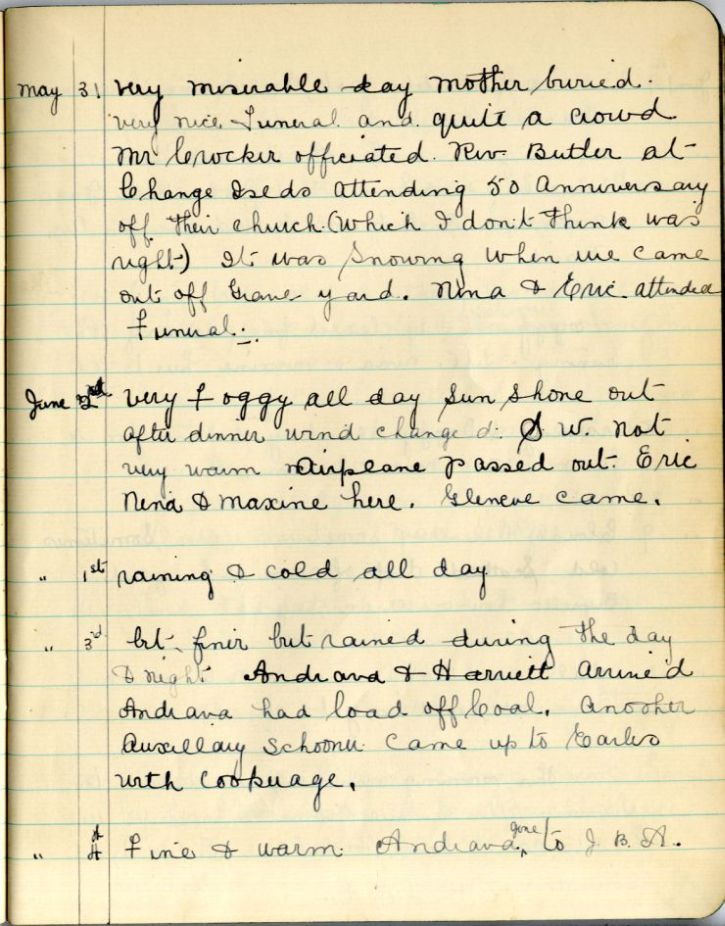 May 31 very miserable day mother buried.
very nice Funeral and quite a crowd
Mr Crocker officiated. Rev. Butler at
Change Islds attending 50 Anniversary
off their church (which I don't think was
right) It was snowing when we came
out off Grave yard. Nina & Eric attended
Funeral.
June 2nd very Foggy all day Sun shone out
after dinner wind changed. S W. not
very warm Airplane passed out. Eric
Nina & Maxine here. Gleneve came.
" 1st raining & cold all day
" 3rd bit finer but rained during the day
& night Andrava & Harriett arrived
Andrava had load off Coal. Another
Auxillary Schooner came up to Earles
with Cooperage.
" 4 Fine & warm. Andrava gone to J. B. A.